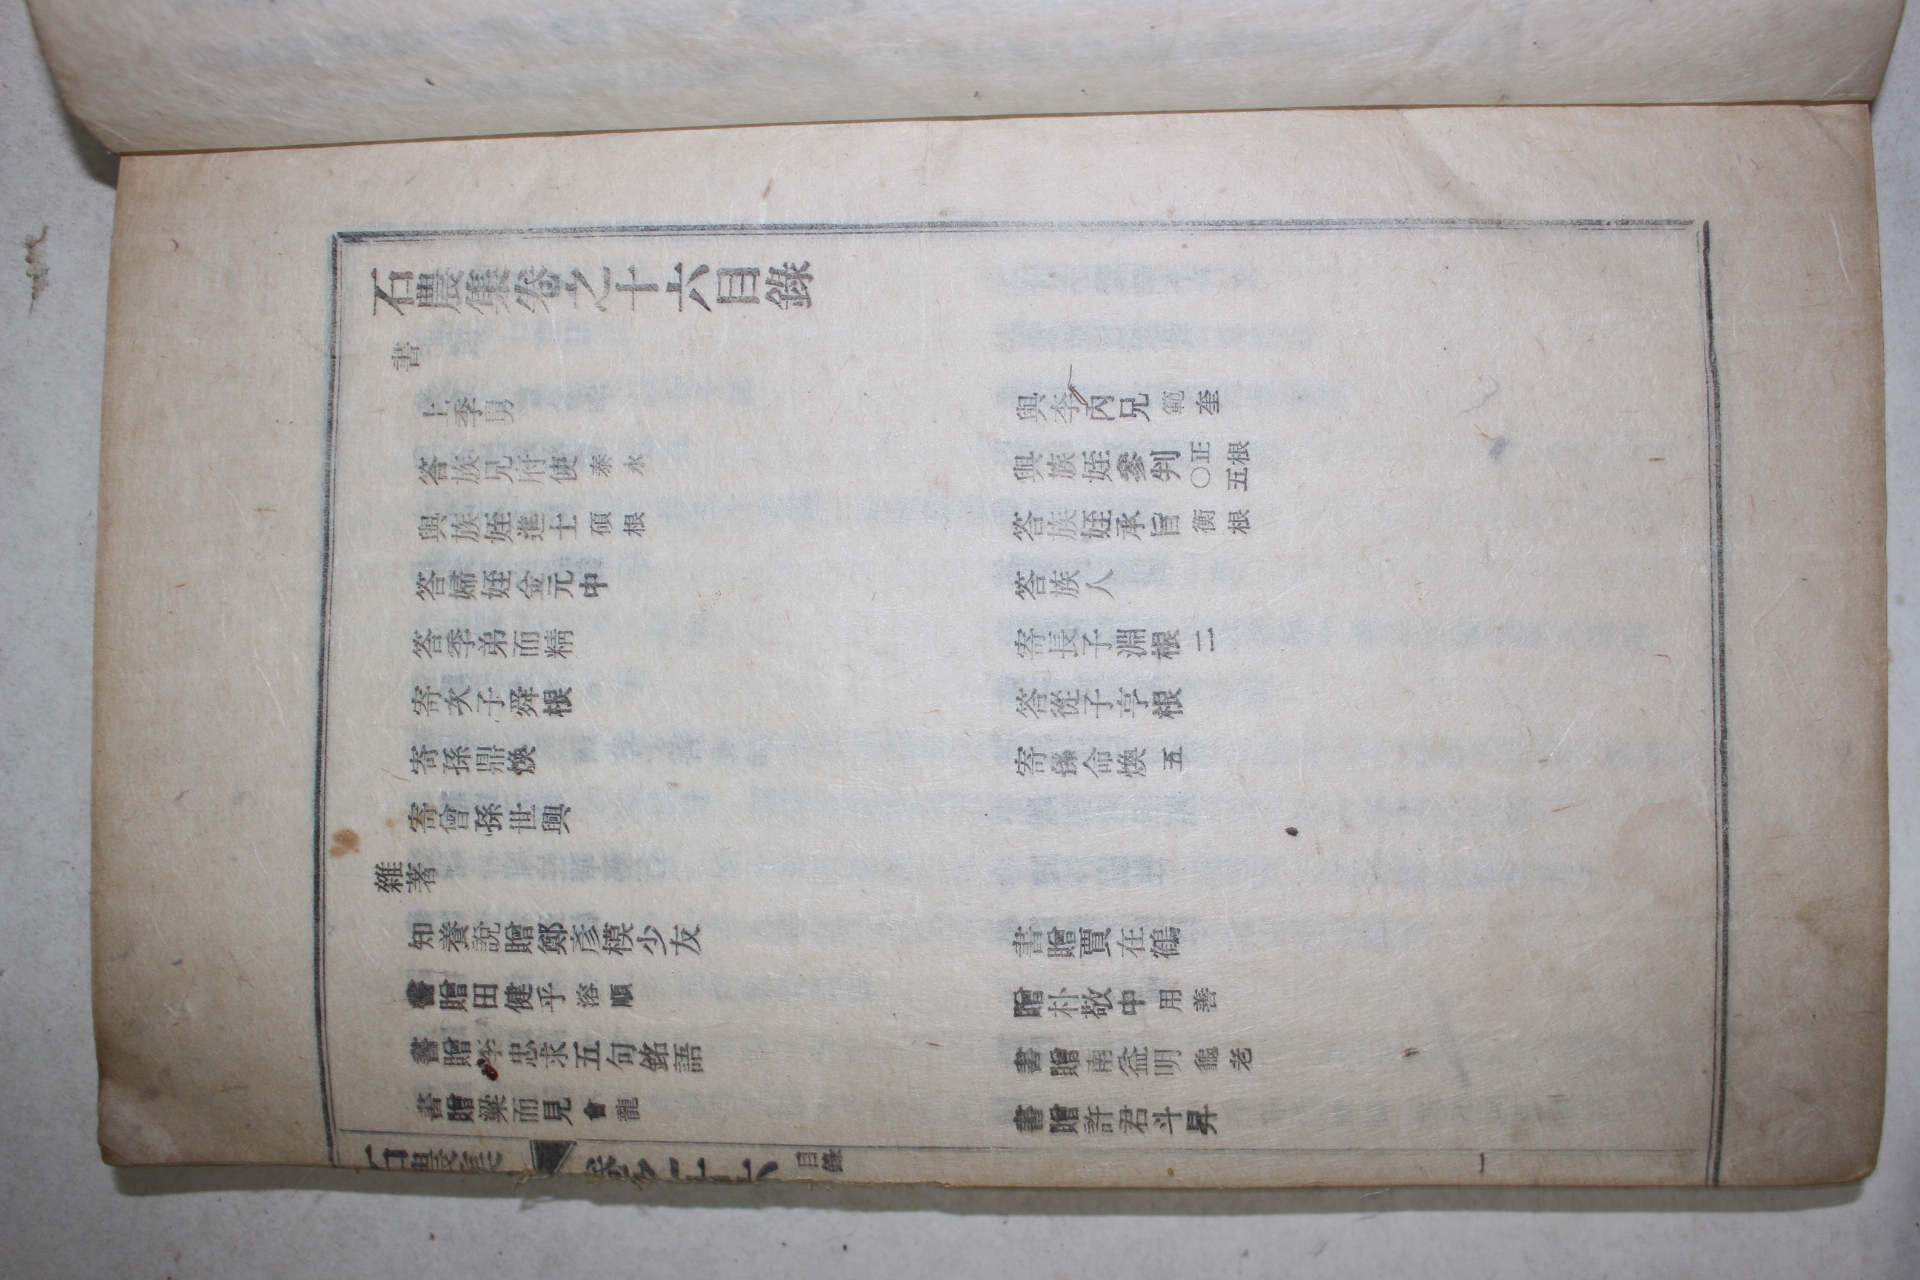 石農集卷之十六目錄
書
上季舅
與李內兄 範奎
答族兄府使 泰永
與族姪參判 正根〇五
與族姪進士 碩根
答族姪承旨 衡根
答婦姪金元中
答族人
答季弟而精
寄長子淵根 二
寄次子舜根
答從子亨根
寄孫鼎煥
寄孫命煥 五
寄曾孫世興
雜著
知養說贈鄭彥模少友
書贈賈在鶴
書贈田健乎 溶順
贈朴敬中 用善
書贈李忠求五句銘語
書贈南益明 龜老
書贈梁而見 會龍
書贈許君斗昇
石農集 卷之十六 目錄 一